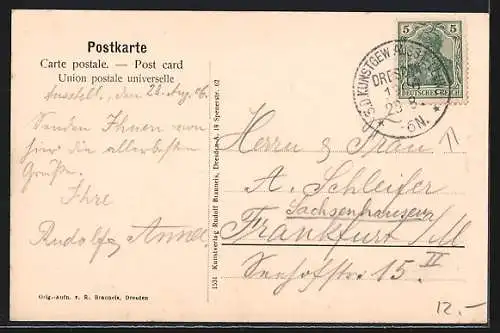 Postkarte
Carte postale. — Post card
Union postale universelle
den 22. Aug. 06.
Senden Ihnen von
hier die allerbesten
Grüße.
Ihre
Rudolf Annel
Orig.-Aufn. v. R. Brauneis, Dresden
1531 Kunstverlag Rudolf Brauneis, Dresden-A. 19 Spenerstr. 62
5 5
DEUTSCHES REICH
KUNSTGEW. AUSST.
DRESD
23 8
5-6N.
Herrn & Frau
A. Schleifer
Sachsenhausen
Frankfurt a/M
Seehofstr. 15 II
12.-